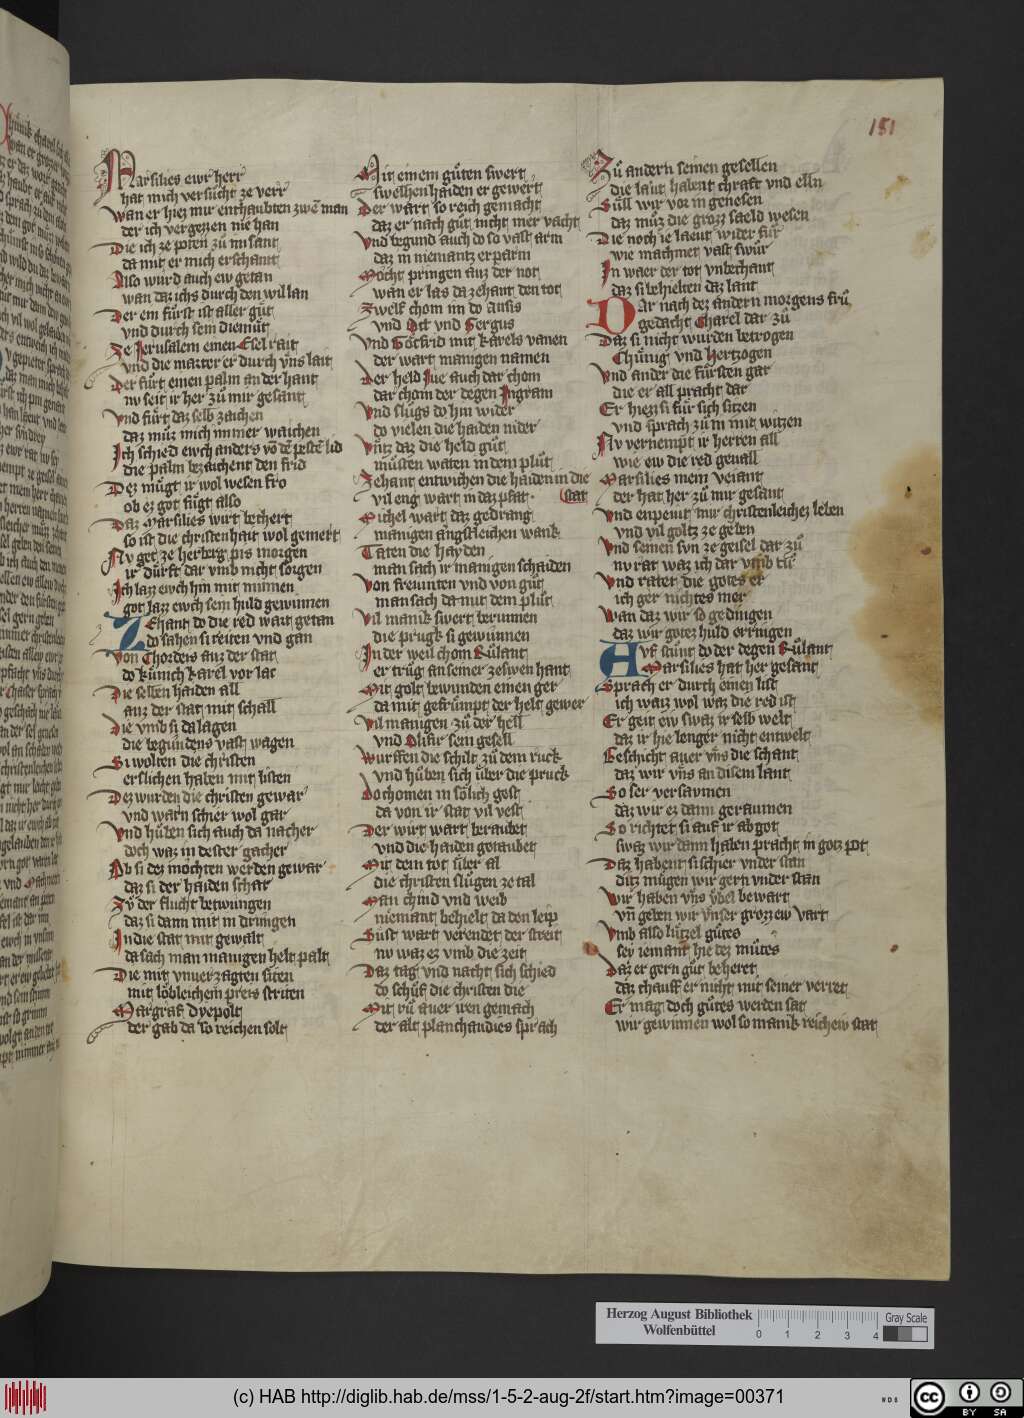 151
Marsilies ewr herr
hat mich versůcht ze verr
Wan er hiez mir enthaubten zwē man
der ich vergezzen nie han
Die ich ze poten zů im sant
da mit er mich erschant
Also wurd auch ew getan
wan daz ichs durch den wil lan
Der ein fůrst ist aller gůt
vnd durch sein diemůt
Ze Jerusalem einen Esel rait
vnd die marter er durch vns lait
Der fůrt einen palm an der hant
nv seit ir her zů mir gesant
Vnd fůrt daz selb zaichen
daz můz mich immer waichen
Ich schied ewch anders vō dē pestē lid
die palm bezaichent den frid
Dez můgt ir wol wesen fro
ob ez got fůgt also
Daz Marsilies wirt bechert
so ist die christenhait wol gemert
Nv get ze herberg pis morgen
ir důrft dar vmb nicht sorgen
Ich lazz ewch hin mit minnen
got lazz ewch sein huld gewinnen
Zehant do die red wart getan
do sahen si reiten vnd gan
Von Chorders auz der stat
do kůnich karel vor lac
Die selben haiden all
auz der stat mit schall
Die vmb si da lagen
die begundens vast wagen
Si wolten die christen
erslichen haben mit listen
Dez wurden die christen gewar
vnd warn schier wol gar
Vnd hůben sich auch da nacher
doch waz in dester gacher
Ab si dez möchten werden gewar
daz si der haiden schar
Zů der flucht betwungen
daz si dann mit in drungen
In die stat mit gewalt
da sach man manigen helt palt
Die mit vnuerzagten siten
mit löbleichem preis striten
Margraf Dyepolt
der gab da so reichen solt
Mit einem gůten swert
swelhen haiden er gewert
Der wart so reich gemacht
daz er nach gůt nicht mer vacht
Vnd begund auch do so vast arm
daz in niemantz erparm
Mocht pringen auz der not
wan er las da zehant den tot
Zwelf chom im do Ansis
vnd Ott vnd Gergus
Vnd Gotfrid mit karels vanen
der wart manigen namen
Der held Jue auch dar chom
dar chom der degen Ingram
Vnd slůgs do hin wider
do vielen die haiden nider
Vntz daz die held gůt
můsten waten in dem plůt
Zehant entwichen die haiden in die stat
vil eng wart in daz pfat
Michel wart daz gedrang
manigen angstleichen wank
Täten die hayden
man sach ir manigen schaiden
Von freunten vnd von gůt
man sach da mit dem plůt
Vil manik swert berinnen
die prugk si gewunnen
In der weil chom Růlant
er trůg an seiner zeswen hant
Mit golt bewunden einen ger
da mit gefrumpt der helt gewer
Vil manigen zů der hell
vnd Olifir sein gesell
Wurffen die schilt zů dem ruck
vnd hůben sich über die pruck
Do chomen in sölich gest
da von ir stat vil vest
Der wirt wart beraubet
vnd die haiden getaubet
Mit dem tot über al
die christen slůgen ze tal
Man chind vnd weib
niemant behielt da den leip
Sůst wart verendet der streit
nv waz ez vmb die zeit
Daz tag vnd nacht sich schied
do schůf die christen die
Mit rů auer iren gemach
der alt planchandies sprach
Zů andern seinen gesellen
die laut habent chraft vnd elln
Sůll wir vor in genesen
daz můz die grozz saeld wesen
Die noch ie laeut wider fůr
wie machmet vast swůr
In waer der tot vnbechant
daz si behielten daz lant
Dar nach dez andern morgens frů
gedacht Charel dar zů
Daz si nicht wurden betrogen
Chůnig vnd hertzogen
Vnd ander die fůrsten gar
die er all pracht dar
Er hiez si fůr sich sitzen
vnd sprach zů in mit witzen
Nv vernempt ir herren all
wie ew die red geuall
Marsilies mein veiant
der hat her zů mir gesant
Vnd enpeutt mir christenleichez leben
vnd vil goltz ze geben
Vnd seinen svn ze geisel dar zů
nv rat waz ich dar vmb tů
Vnd ratet die gotes er
ich ger nichtes mer
Wan daz wir so gedingen
daz wir gotez huld erringen
Auf stůnt do der degen Růlant
Marsilies hat her gesant
Sprach er durch einen list
ich waiz wol waz die red ist
Er geit ew swaz ir selb welt
daz ir hie lenger nicht entwelt
Geschicht auer vns die schant
daz wir vns an disem lant
So ser versavmen
daz wir ez dann geraumen
So richtet si auf ir abgot
swaz wir dann haben pracht in gotz pot
Daz habent si schier vnder stan
ditz můgen wir gern vnder stan
Wir haben vns ybel bewart
vn geben wir vnser grozzew vart
Vmb also lützel gůtes
sey iemant hie dez můtes
Daz er gern gůt beheret
dar chauff er nicht mit seiner verret
Er mag doch gůtes werden sat
wir gewinnen wol so manik reichew stat
Herzog August Bibliothek
Wolfenbüttel
0 1 2 3 4
Gray Scale
(c) HAB http://diglib.hab.de/mss/1-5-2-aug-2f/start.htm?image=00371
cc BY SA